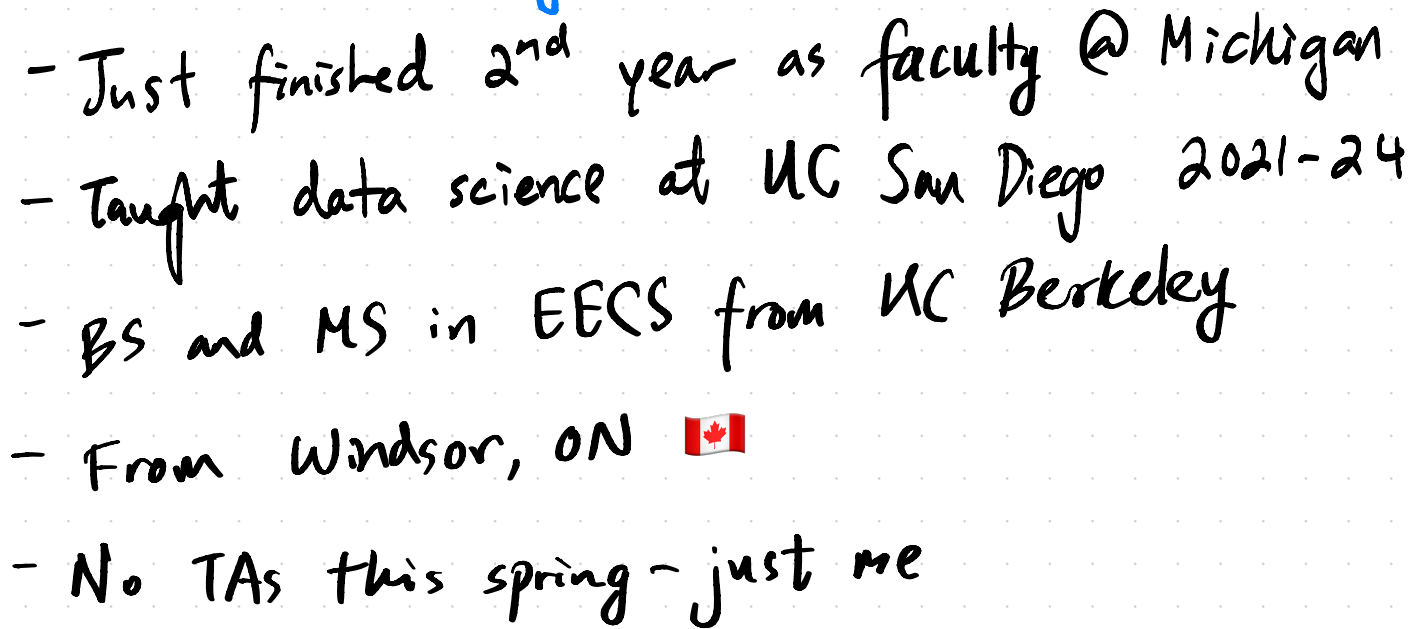 - Just finished 2nd year as faculty @ Michigan
- Taught data science at UC San Diego 2021-24
- BS and MS in EECS from UC Berkeley
- From Windsor, ON 🇨🇦
- No TAs this spring - just me